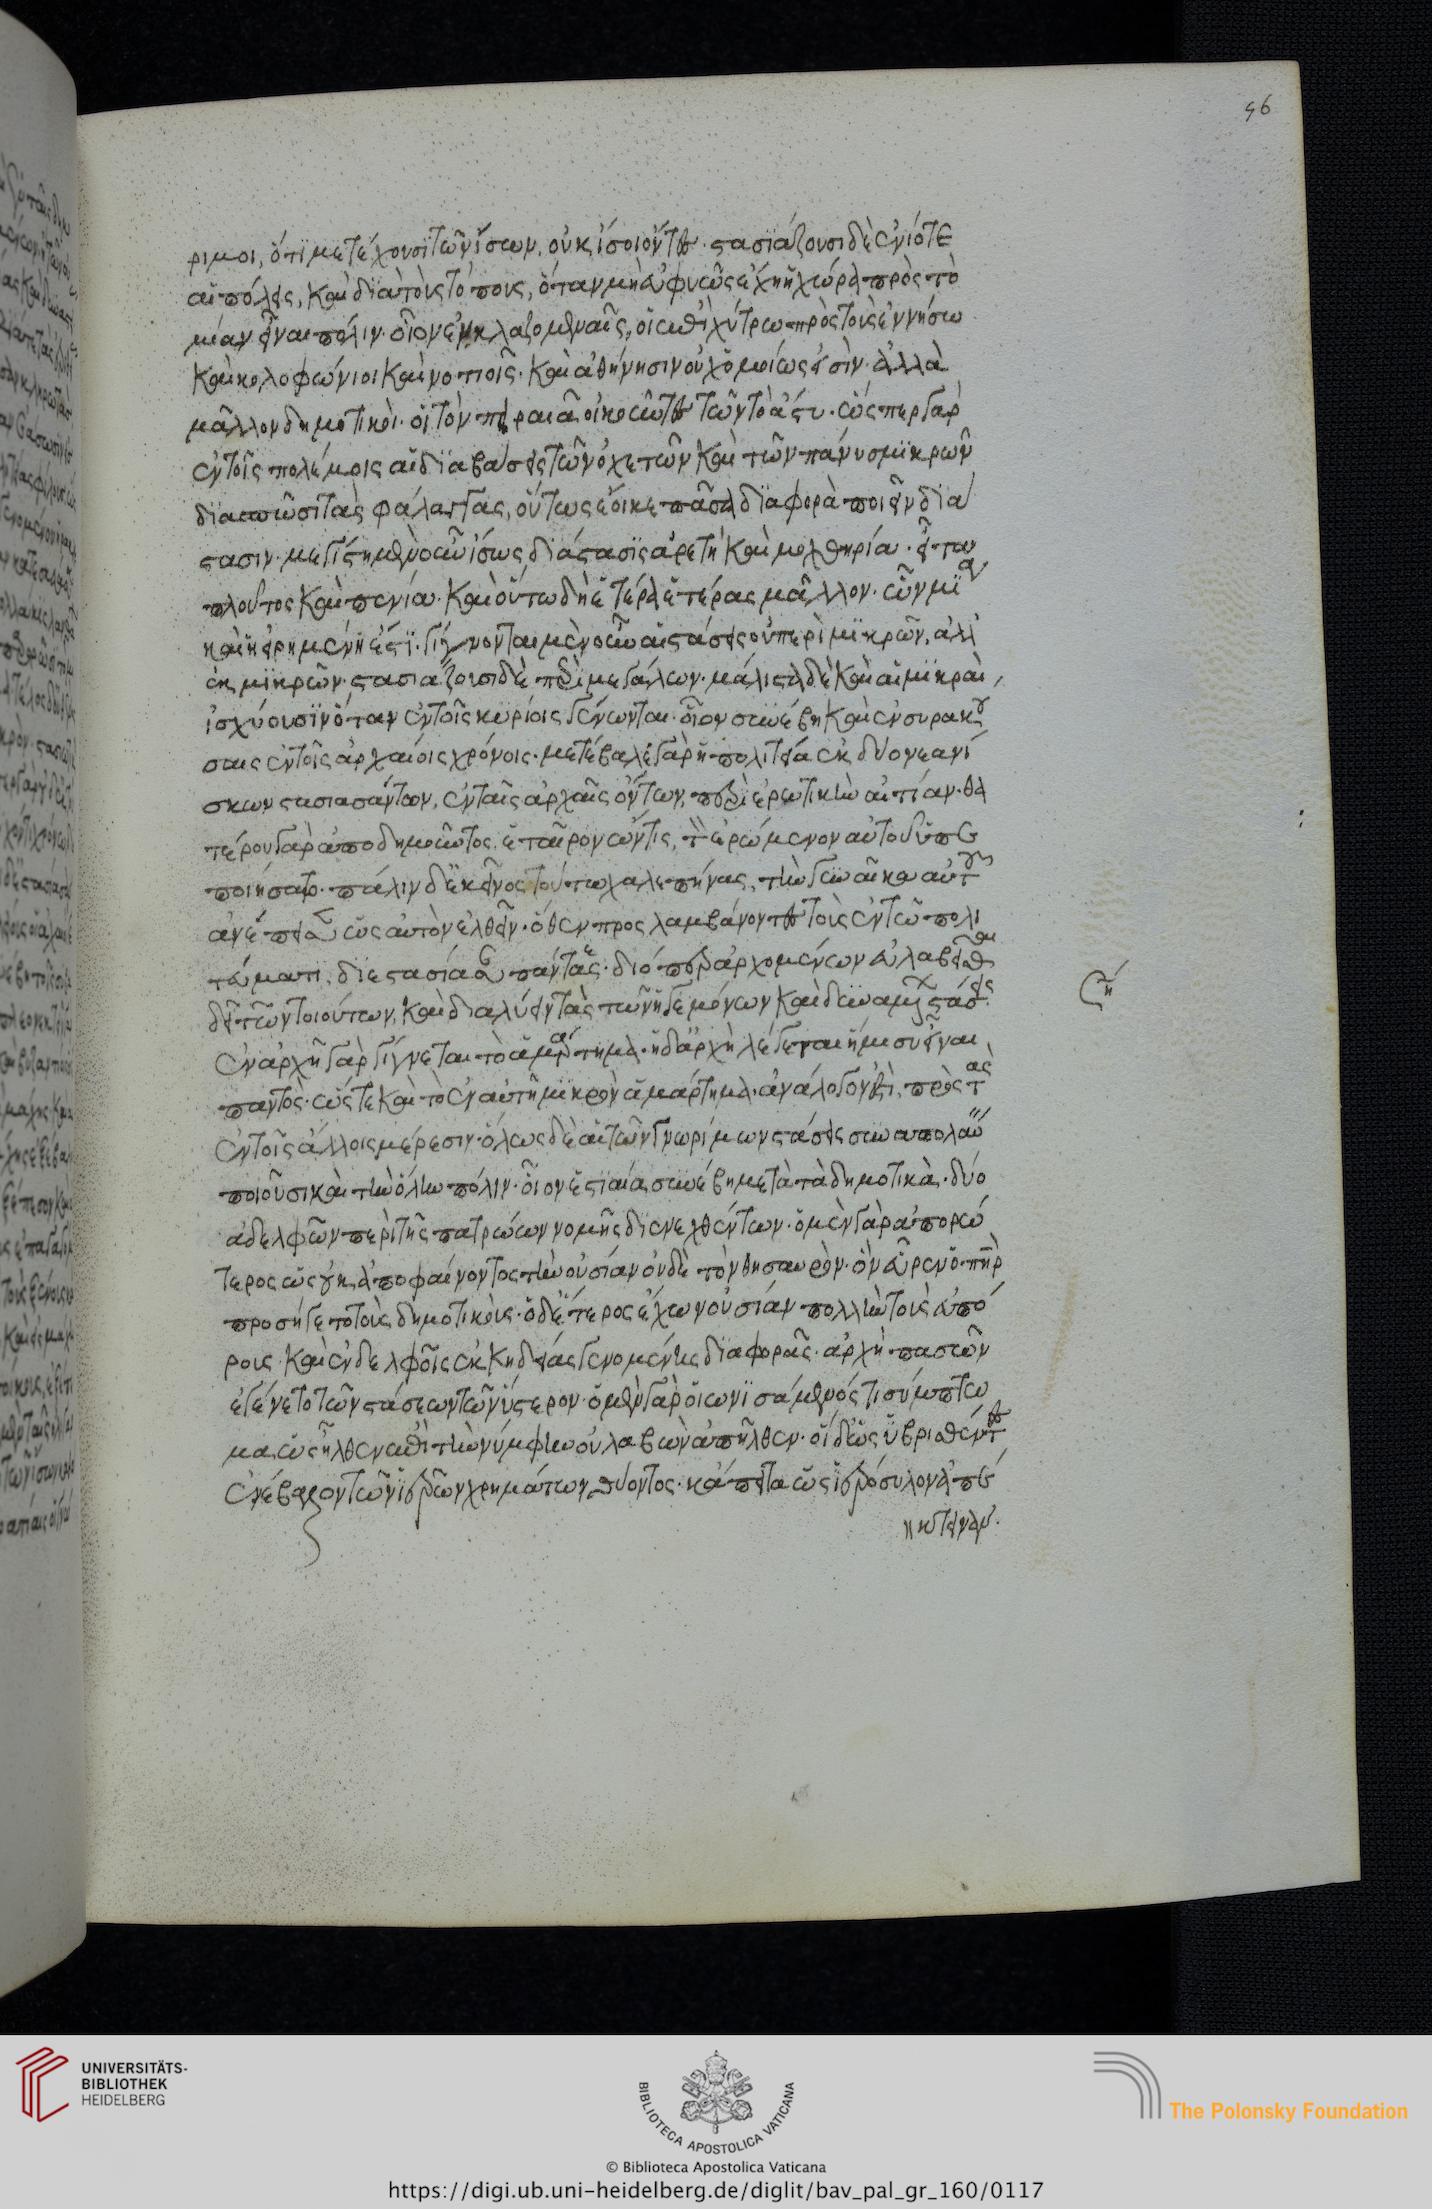 96
ριμοι, ὅτι μετέχουσι τῶν ἴσων, οὐκ ἴσοι ὄντες. στασιάζουσι δὲ ἐνίοτε
αἱ πόλεις, καὶ διὰ τοὺς τόπους, ὅταν μὴ εὐφυῶς ἔχῃ ἡ χώρα πρὸς τὸ
μίαν εἶναι πόλιν. οἷον ἐν κλαζομεναῖς, οἱ ἐπὶ χύτρω πρὸς τοὺς ἐν νήσω
καὶ κολοφώνιοι καὶ νοτιοῖς. καὶ ἀθήνησιν οὐχ ὁμοίως εἰσὶν. ἀλλὰ
μᾶλλον δημοτικοὶ. οἱ τὸν πειραιᾶ οἰκοῦντες τῶν τὸ ἄστυ. ὥσπερ γὰρ
ἐν τοῖς πολέμοις αἱ διαβάσεις τῶν ὀχετῶν καὶ τῶν πάνυ σμικρῶν
διασπῶσι τὰς φάλαγγας, οὕτως ἔοικε πᾶσα διαφορὰ ποιεῖν διά
στασιν. μεγίστη μὲν οὖν ἴσως διάστασις ἀρετὴ καὶ μοχθηρία. εἶτα
πλοῦτος καὶ πενία. καὶ οὕτω δὴ ἑτέρα ἑτέρας μᾶλλον. ὧν μία
καὶ ἡ εἰρημένη ἐστί. γίγνονται μὲν οὖν αἱ στάσεις οὐ περὶ μικρῶν, ἀλλ'
ἐκ μικρῶν. στασιάζουσι δὲ περὶ μεγάλων. μάλιστα δὲ καὶ αἱ μικραὶ
ἰσχύουσιν ὅταν ἐν τοῖς κυρίοις γένωνται. οἷον συνέβη καὶ ἐν συρακού
σαις ἐν τοῖς ἀρχαίοις χρόνοις. μετέβαλε γὰρ ἡ πολιτεία ἐκ δύο νεανί
σκων στασιασάντων, ἐν ταῖς ἀρχαῖς ὄντων, περὶ ἐρωτικὴν αἰτίαν. θα
τέρου γὰρ ἀποδημοῦντος. ἑταῖρον ὤν τις, τὸν ἐρώμενον αὐτοῦ ὑπε
ποιήσατο. πάλιν δὲ κεῖνος τούτω χαλεπήνας, τὴν γυναῖκα αὐτοῦ
ἀνέπεισεν ὡς αὐτὸν ἐλθεῖν. ὅθεν προσλαμβάνοντες τοὺς ἐν τῶ πολι
τεύματι, διεστασίασαν πάντας. διόπερ ἀρχομένων εὐλαβεῖσθαι
δεῖ τῶν τοιούτων, καὶ διαλύειν τὰς τῶν ἡγεμόνων καὶ δυναμένων στάσεις.
ἐν ἀρχῆ γὰρ γίγνεται τὸ ἁμάρτημα. ἡ δ' ἀρχὴ λέγεται ἥμισυ εἶναι
παντὸς. ὥστε καὶ τὸ ἐν αὐτῆ μικρὸν ἁμάρτημα, ἀνάλογόν ἐστι, πρὸς τὰς
ση
ἐν τοῖς ἄλλοις μέρεσιν. ὅλως δὲ αἱ τῶν γνωρίμων στάσεις συναπολαύειν
ποιοῦσι καὶ τὴν ὅλην πόλιν. οἷον ἐν ἑστιαία συνέβη μετὰ τὰ δημοτικὰ. δύο
ἀδελφῶν περὶ τῆς πατρώων νομῆς διενεχθέντων. ὁ μὲν γὰρ ἀπορώ
τερος ὡς οὐκ ἀποφαίνοντος τὴν οὐσίαν οὐδὲ τὸν θησαυρὸν. ὃν εὗρεν ὁ πατὴρ
προσήγετο τοὺς δημοτικοὺς. ὁ δ' ἕτερος ἔχων οὐσίαν πολλὴν τοὺς εὐπό
ρους. καὶ ἐν δελφοῖς ἐκ κηδείας γενομένης διαφορᾶς. ἀρχὴ πασῶν
ἐγένετο τῶν στάσεων τῶν ὕστερον. ὁ μὲν γὰρ οἰωνισάμενός τι σύμπτω
μα ὡς ἦλθεν ἐπὶ τὴν νύμφην οὐ λαβὼν ἀπῆλθεν. οἱ δ' ὡς ὑβρισθέντες
ἐνέβαλον τῶν ἱερῶν χρημάτων θύοντος. κἄπειτα ὡς ἱερόσυλον ἀπέ
κτειναν.
UNIVERSITÄTS-
BIBLIOTHEK
HEIDELBERG
BIBLIOTECA APOSTOLICA VATICANA
© Biblioteca Apostolica Vaticana
The Polonsky Foundation
https://digi.ub.uni-heidelberg.de/diglit/bav_pal_gr_160/0117